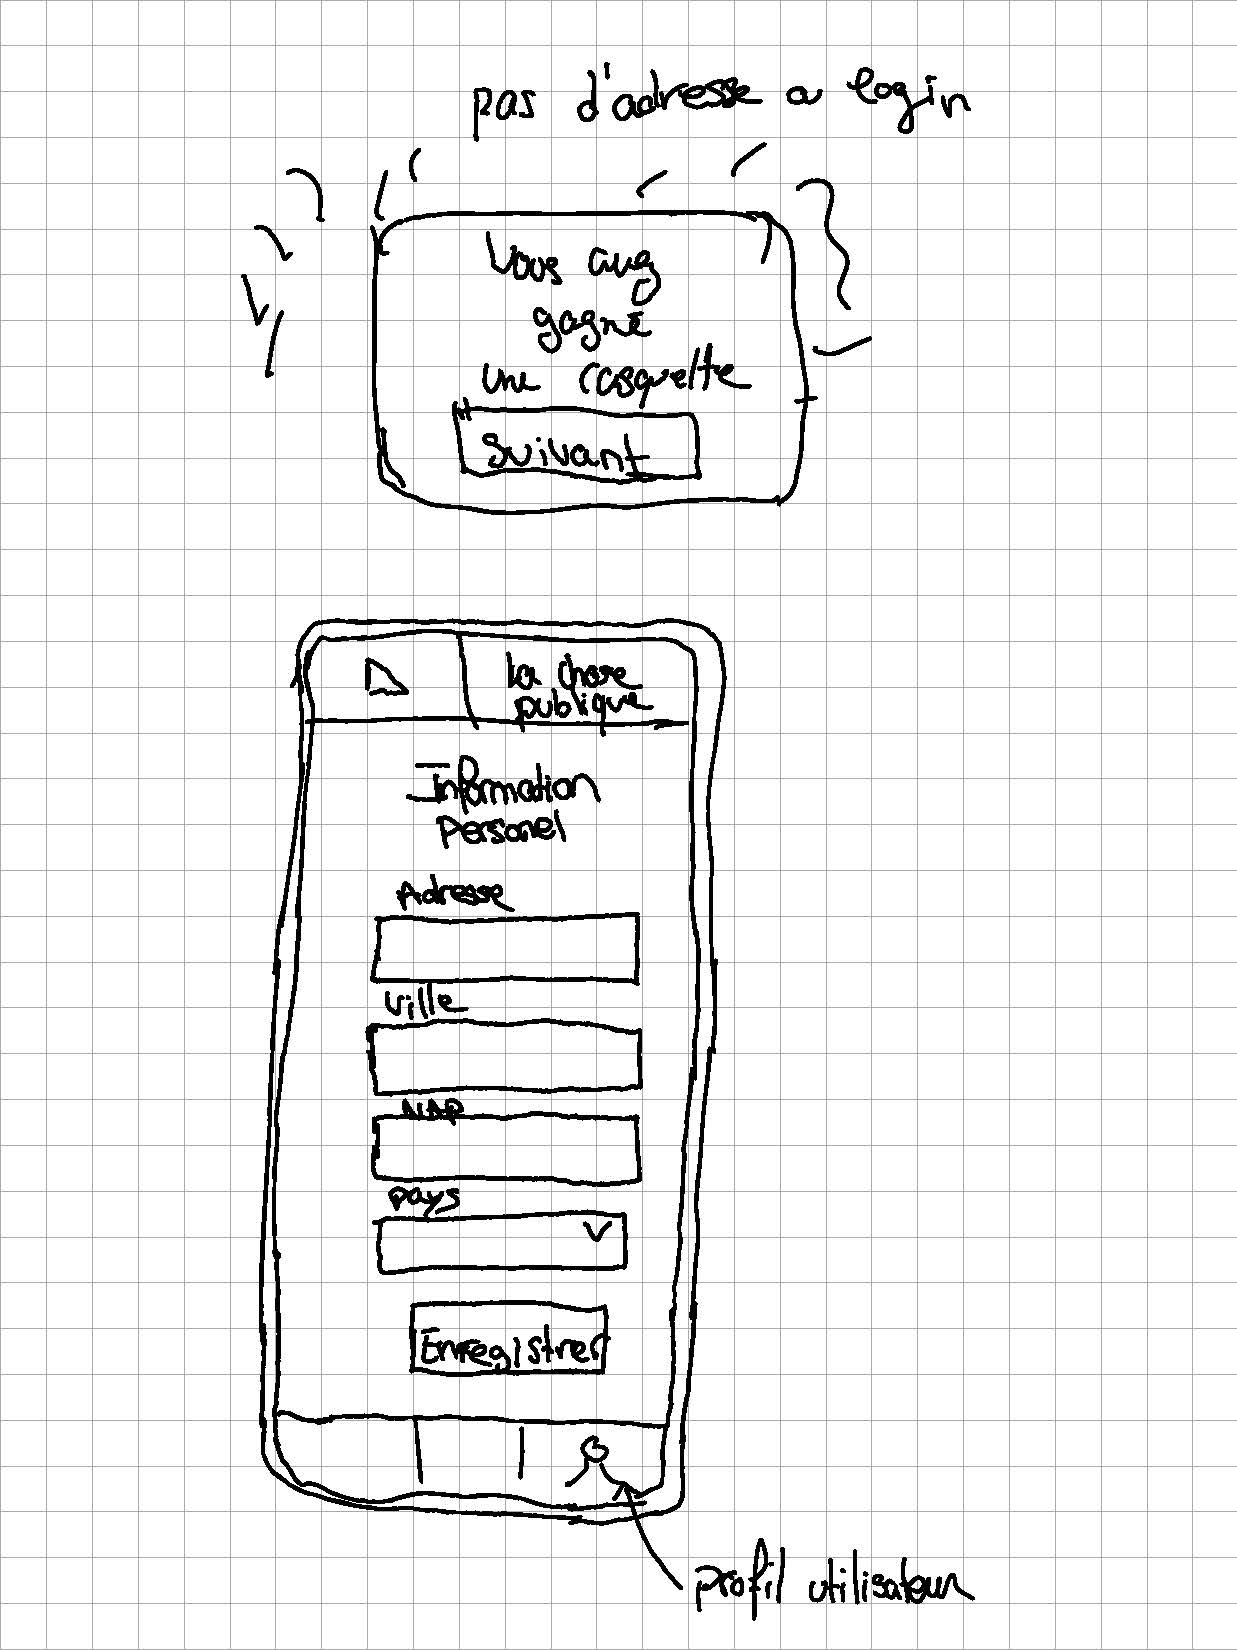 pas d'adresse a login
Vous avez
gagné
une casquette
Suivant
La chose
publique
Information
Personel
Adresse
Ville
NAP
pays
Enregistrer
profil utilisateur